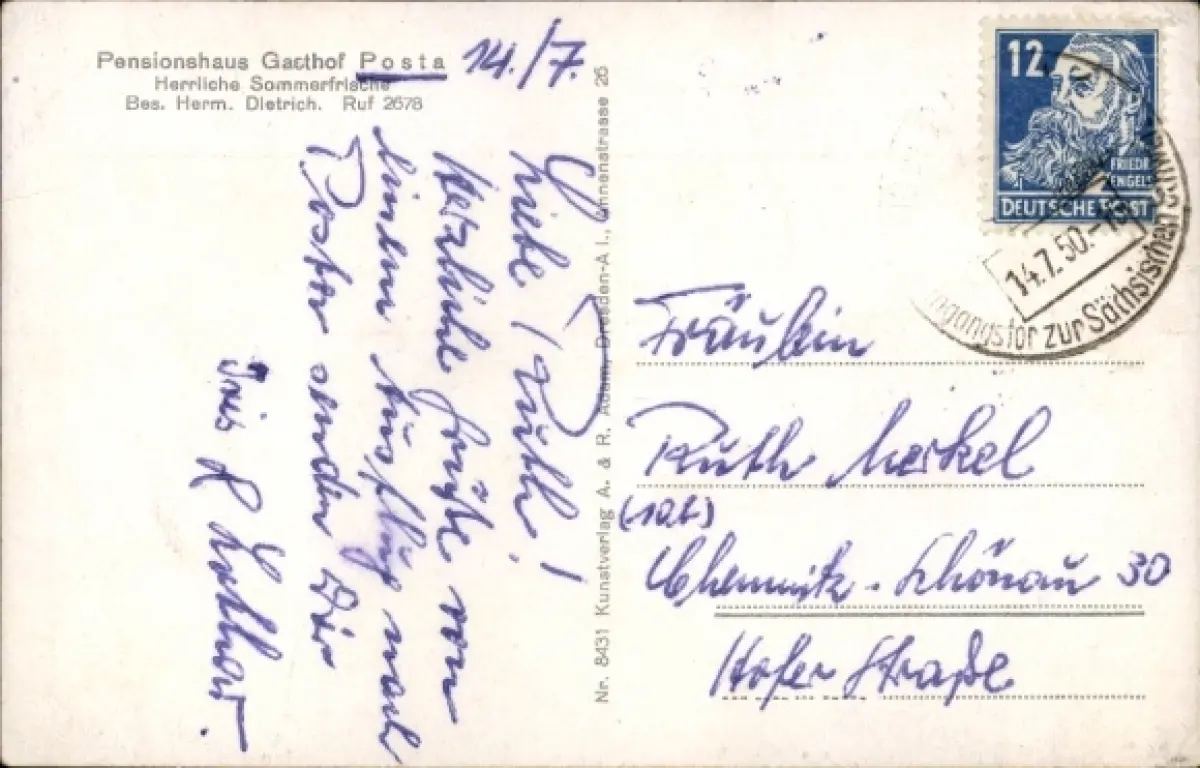 Pensionshaus Gasthof Posta
Herrliche Sommerfrische
Bes. Herm. Dietrich. Ruf 2678
14./7.
Liebe Ruth!
Herzliche Grüße von
einem Ausflug nach
Posta senden Dir
Lothar.
Nr. 8431 Kunstverlag A. & R. Adam, Dresden-A 1., Annenstrasse 26
12
FRIEDR
ENGELS
DEUTSCHE POST
14.7.50.-
zur Sächsischen Schweiz
Fräulein
Ruth Merkel
(10b)
Chemnitz-Schönau 30
Hofer Straße